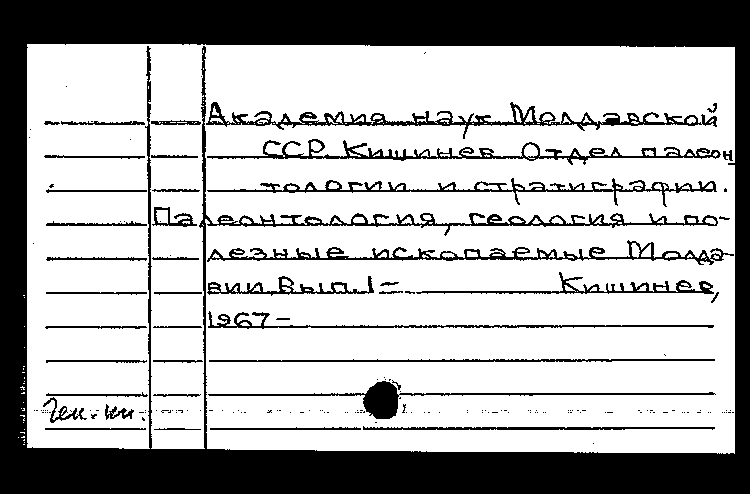 Академия наук Молдавской
ССР. Кишинев. Отдел палеон
тологии и стратиграфии.
Палеонтология, геология и по-
лезные ископаемые Молда-
вии. Вып. 1 –        Кишинев,
1967 –